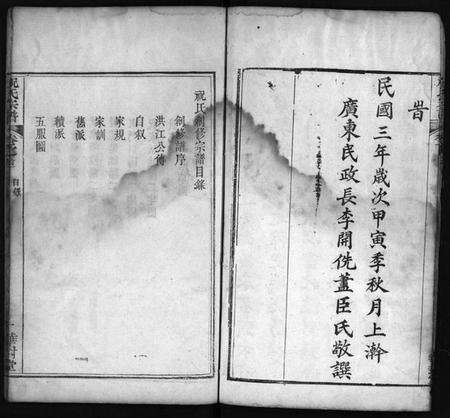 時
民國三年歲次甲寅季秋月上澣
廣東民政長李開侁藎臣氏敬撰
祝氏創修宗譜目錄
創修譜序
洪江公傳
自叙
家規
家訓
舊派
續派
五服圖
祝氏宗譜
目錄